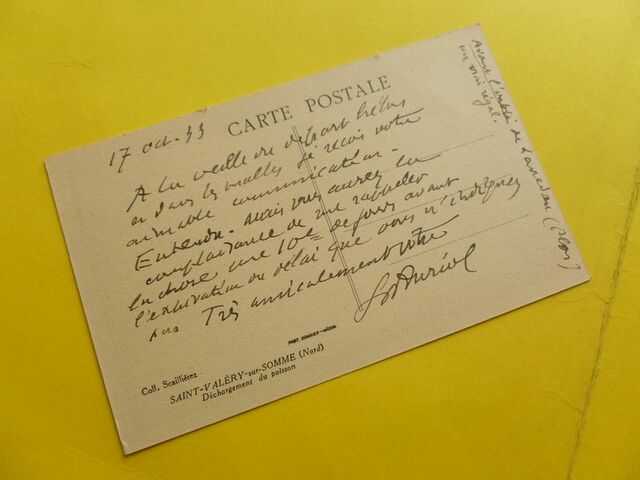 CARTE POSTALE
17 oct. 33
A la veille du départ hélas
et dans les malles je reçois votre
aimable communication.
Entendu. mais vous aurez la
complaisance de me rappeler
la chose une 10e de jours avant
l'expiration du délai que vous m'indiquez
Très amicalement votre
Auriol
Avant l'oubli de
un vrai régal
PHOT. COMBIER-MÂCON
Coll. Scailliérez
SAINT-VALÉRY-sur-SOMME (Nord)
Déchargement du poisson